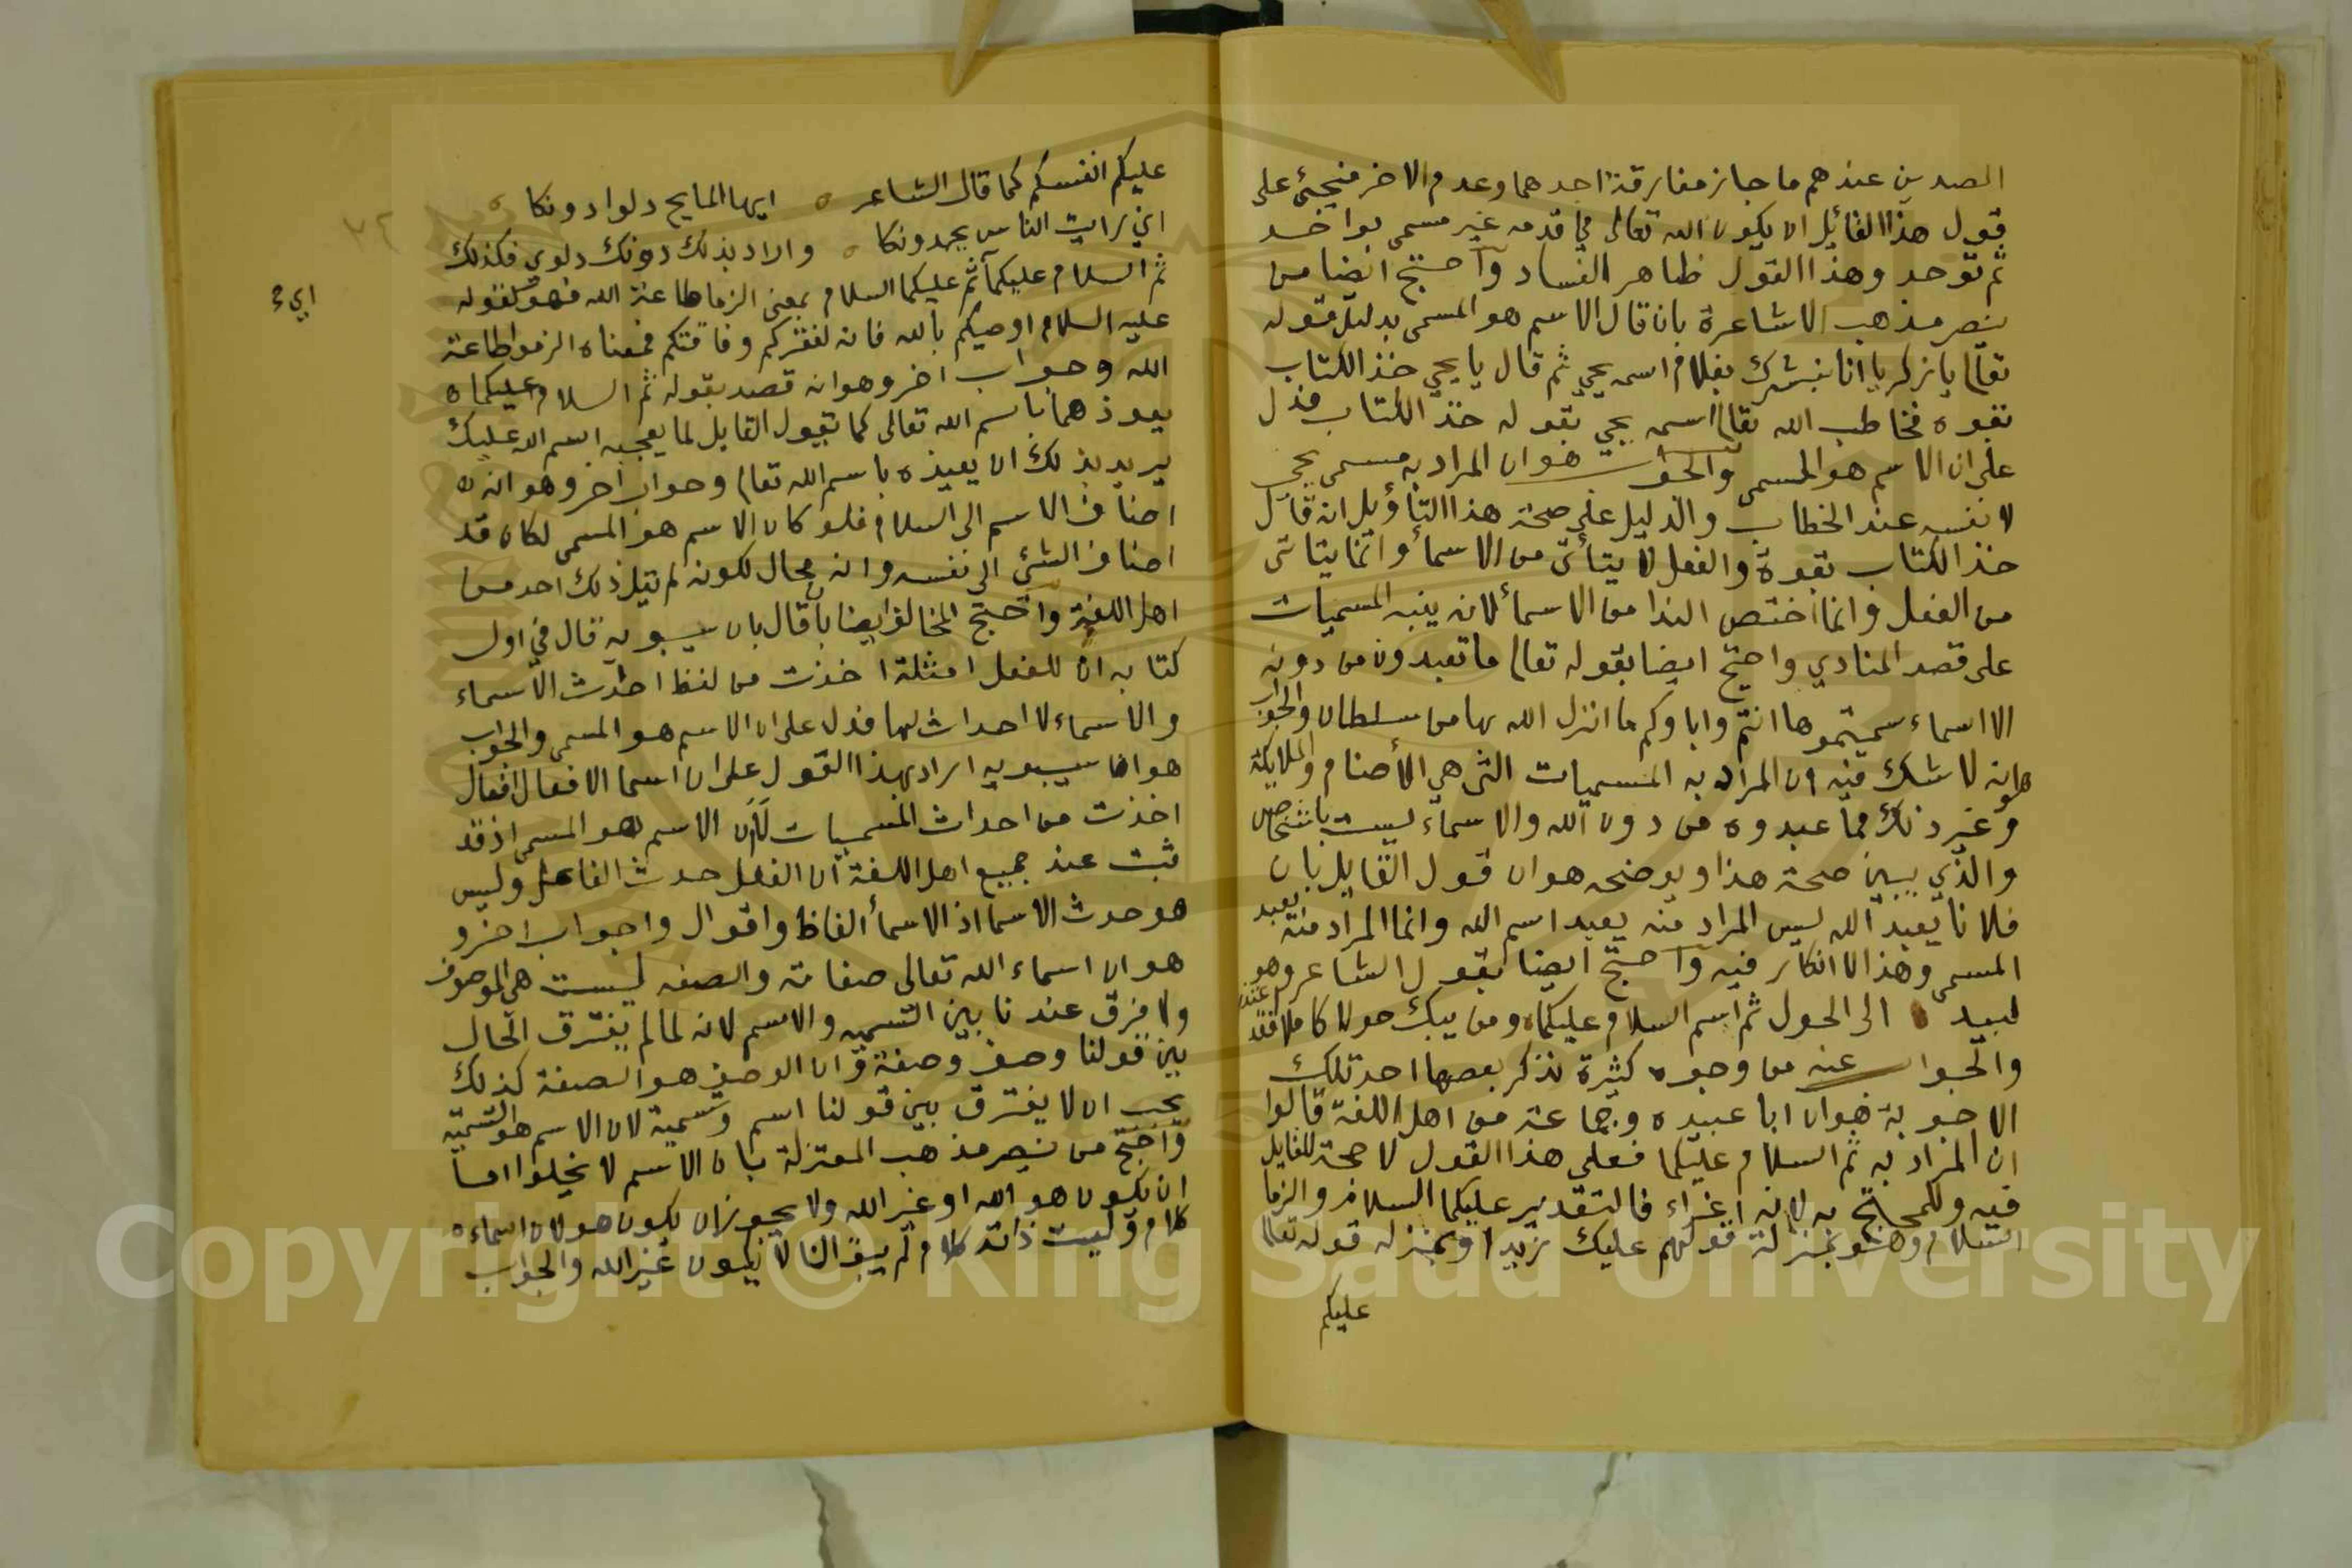 الصدين عندهم ما جاز مفارقة احدهما وعدم الاخر فيجئ على
قول هذا القائل ان يكون الله تعالى في قدمه غير مسمى بواحد
ثم توحد وهذا القول ظاهر الفساد واحتج ايضا من
ينصر مذهب الاشاعرة بان قال الاسم هو المسمى بدليل قوله
تعالى يا زكريا انا نبشرك بغلام اسمه يحي ثم قال يا يحي خذ الكتاب
بقوه فخاطب الله تعالى اسمه يحي بقوله خذ الكتاب فدل
على ان الاسم هو المسمى والجواب هو ان المراد به مسمى يحي
لا نفسه عند الخطاب والدليل على صحة هذا التأويل انه قال
خذ الكتاب بقوة والفعل لا يتأتى من الاسماء وانما يتاتى
من الفعل وانما اختص الندا من الاسماء لانه ينبه المسميات
على قصد المنادي واحتج ايضا بقوله تعالى ما تعبدون من دونه
الا اسماء سميتموها انتم واباوكم ما انزل الله بها من سلطان والجواب
هو انه لا شك فيه ان المراد به المسميات التي هي الأصنام والملايكة
وغير ذلك مما عبدوه من دون الله والاسماء ليست باشخاص
والذي يبين صحة هذا ويوضحه هو ان قول القايل بان
فلانا يعبد الله ليس المراد منه يعبد اسم الله وانما المراد منه يعبد
المسمى وهذا لا انكار فيه واحتج ايضا بقول الشاعر وهو
لبيد الى الحول ثم اسم السلام عليكما ومن يبك حولا كاملا فقد
والجواب عنه من وجوه كثيرة نذكر بعضها احد تلك
الاجوبة هو ان ابا عبيده وجماعة من اهل اللغة قالوا
ان المراد به ثم السلام عليكما فعلى هذا القول لا حجة للقايل
فيه وللمحتج به لانه اغراء فالتقدير عليكما السلام والزما
السلام وهو بمنزلة قولهم عليك زيدا وبمنزله قوله تعالى
عليكم
عليكم انفسكم كما قال الشاعر ايها المايح دلوا دونكا
اني رايت الناس يحمدونكا واراد بذلك دونك دلوي فكذلك
ثم السلام عليكما ثم عليكما السلام بمعنى الزما طاعة الله فهو كقوله
اي
عليه السلام اوصيكم بالله فانه لفقركم وفاقتكم فمعناه الزموا طاعة
الله وجواب اخر وهو انه قصد بقوله ثم السلام عليكما ه
يعوذهما باسم الله تعالى كما تقول القايل لما يعجبه اسم الله عليك
يريد بذلك ان يعيذه باسم الله تعالى وجواب اخر وهو انه
اضاف الاسم الى السلام فلو كان الاسم هو المسمى لكان قد
اضاف الشئ الى نفسه وانه محال لكونه لم يقل ذلك احد من
اهل اللغة واحتج المخالف ايضا بان قال بان سيبويه قال في اول
كتابه ان للفعل امثلة اخذت من لفظ احداث الاسماء
والاسماء لا احداث لها فدل على ان الاسم هو المسمى والجواب
هو ان سيبويه اراد بهذا القول على ان اسما الافعال افعال
اخذت من احداث المسميات لأن الاسم هو المسمى اذ قد
ثبت عند جميع اهل اللغة ان الفعل حدث الفاعل وليس
هو حدث الاسما اذ الاسماء الفاظ واقوال واجواب اخر و
هو ان اسماء الله تعالى صفاته والصفه ليست هي الموصوف
ولا فرق عندنا بين التسميه والاسم لانه لما لم يفترق الحال
بين قولنا وصف وصفة وان الوصف هو الصفة كذلك
يجب ان لا يفترق بين قولنا اسم وتسمية لان الاسم هو التسمية
واحتج من ينصر مذهب المعتزلة بان الاسم لا يخلوا اما
ان يكون هو الله او غير الله ولا يجوز ان يكون هو لان اسماءه
كلام وليست ذاته كلام لم يبق الا ان يكون غير الله والجواب
Copyright © King Saud University